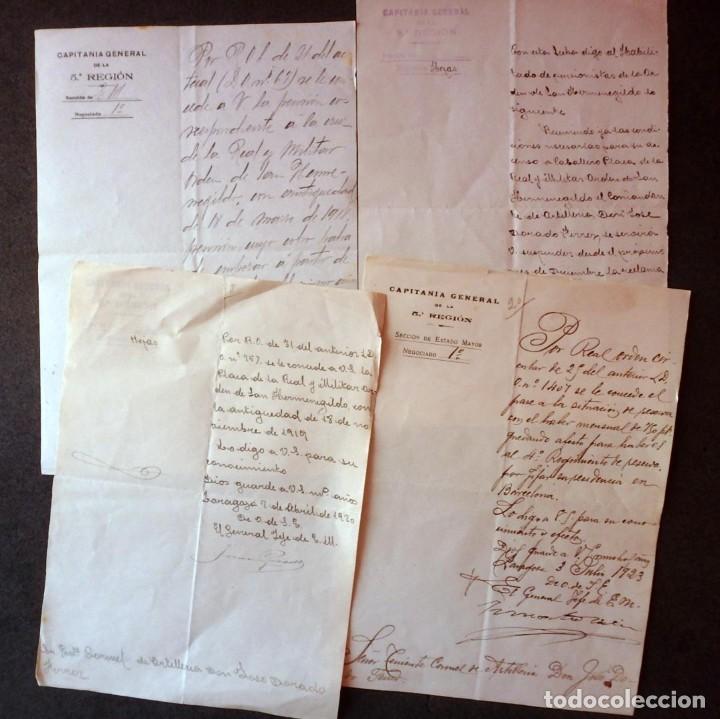 CAPITANIA GENERAL
DE LA
5.ª REGIÓN
Sección de E M
Negociado 1º
Por R O C de 21 del ac
tual (D O nº 67) se le con
cede á V la pensión co
rrespondiente á la cruz
de la Real y Militar
Orden de San Herme
negildo, con antiguedad
de 11 de Marzo de
pensión cuyo cobro habrá
de empezar á partir de
CAPITANIA GENERAL
DE LA
5.ª REGIÓN
Hojas
Con esta fecha digo al Habili
tado de pensionistas de la Or
den de San Hermenegildo lo
siguiente
Reuniendo ya las condi
ciones necesarias para su as
censo a Caballero Placa de la
Real y Militar Orden de San
Hermenegildo el Comandan
te de Artilleria Don Jose
Dorado Ferrer, se servirá
V. suspender desde el próximo
mes de Diciembre la reclama
Hojas
Por R.O. de 31 del anterior (D.
O nº 757) se le concede a V.S. la
Placa de la Real y Militar Or
den de San Hermenegildo con
la antiguedad de 28 de no
viembre de 1919
Lo digo a V.S. para su
conocimiento
Dios guarde a V.S. mº años
Zaragoza 7 de Abril de 1920
De O. de S. E.
El General Jefe de E. M.
Sr Tenº Coronel de Artilleria Don Jose Dorado
Ferrer
CAPITANIA GENERAL
DE LA
5.ª REGIÓN
SECCIÓN DE ESTADO MAYOR
NEGOCIADO 1º
Por Real orden cir
cular de 29 del anterior (D.
O. nº 1407) se le concede el
pase a la situación de reserva
con el haber mensual de 750 pts
quedando afecto para haberes
al 4º Regimiento de reserva
por fijar su residencia en
Barcelona.
Lo digo a V.S. para su cono
cimiento y efectos
Dios guarde a V.S. muchos años
Zaragoza 3 Julio 1923
De O. de S. E.
El General Jefe de E. M.
Señor Teniente Coronel de Artilleria Don José Do-
rado Ferrer.
todocoleccion